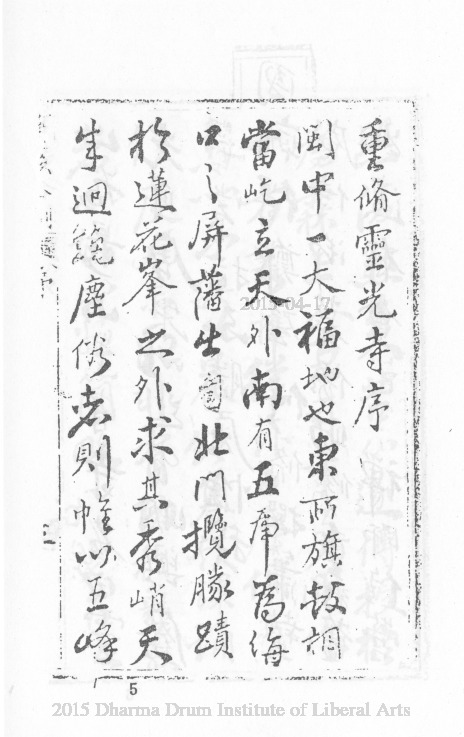 重脩靈光寺序
閩中一大福地也東所旗鼓
當屹立天外南有五虎為海
口之屏藩出北門攬勝蹟
於蓮花峯之外求其秀峭天
迥塵俗者則惟以五峰
5
2015-04-17
2015 Dharma Drum Institute of Liberal Arts